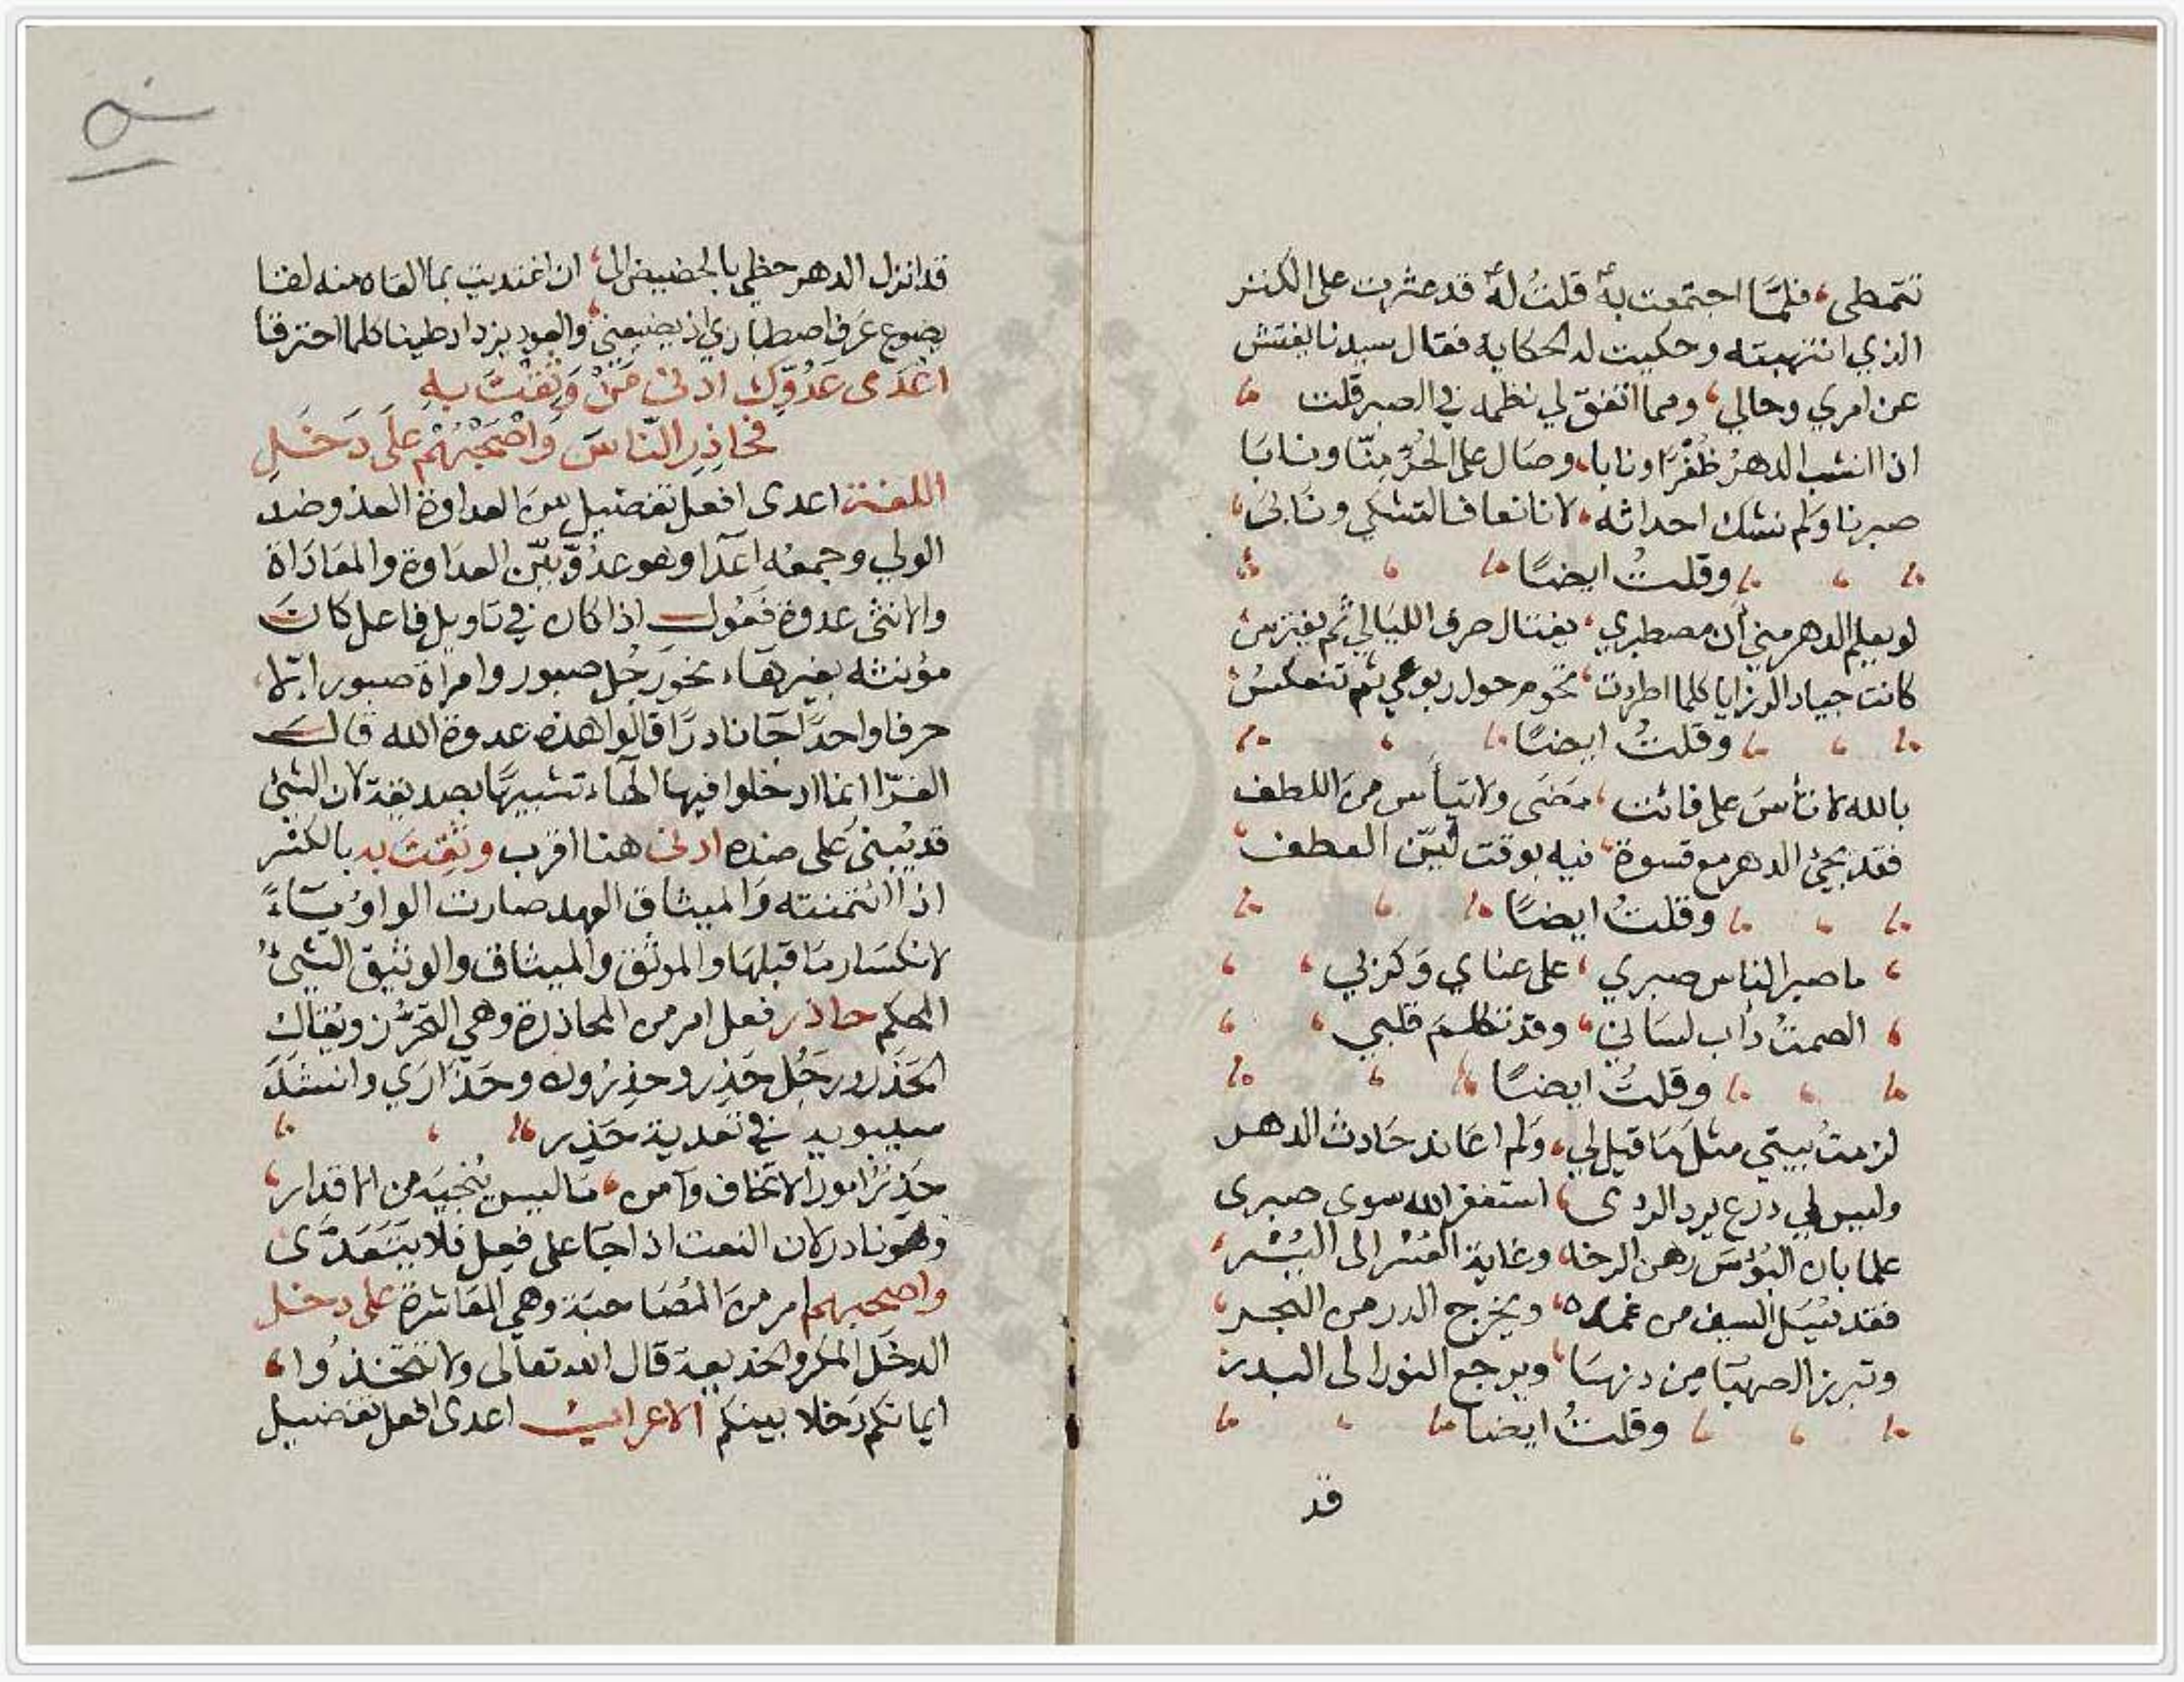 تتمطى، فلمّا اجتمعت به قلتُ له قد عثرت على الكنز
الذي انتهبته وحكيت له الحكاية فقال سيدنا يفتش
عن امري وحالي، ومما اتفق لي نظمه في الصبر قلت
اذا انشب الدهرُ ظُفْرًا ونابا، وصال على الحُرّ منّا ونابَا
صبرنا ولم نشك احداثه، لانا نعاف التشكي ونَابى،
وقلتُ ايضًا
لو يعلم الدهر مني أن مصطبري، يغتال صرف الليالي ثم يفترسُ
كانت جياد الرزايا كلما اطردت، نحوم حول ربوعي ثم تنعكسُ
وقلتُ ايضًا
بالله لا تأسَ على فائت، مضَى ولا تيأس من اللطف
فقد يجئ الدهر مع قسوة، فيه بوقت ليّن العطف،
وقلتُ ايضًا
ما صبر الناس صبري، على عناي وكربي،
الصمتُ دأب لساني، وقد تكلم قلبي،
وقلتُ ايضًا
لزمتُ بيتي مثلَ مَا قيل لي، ولم اعَاند حَادث الدهر
وليس لي درع يرد الردى، استغفر الله سوى صبرى
علما بان البُؤسَ رهن الرخا، وغاية العُسْر الى اليُسْر،
فقد يُسَل السيف من غمده، ويخرج الدر من البحر،
وتبرز الصهبَا مِن دنهَا، ويرجع النور الى البدر
وقلتُ ايضا
قد
قد انزل الدهر حظي بالحضيض الى، ان اغتديت بما القاه منه لقا
يضوع عَرف اصطباري اذ يضيعني، والعود يزداد طيبا كلما احترقا
اعْدَى عَدُوِّك ادنى مَنْ وَثِقْتَ بِهِ
فحَاذِرِ النّاسَ وَاصْحَبْهُمْ عَلَى دَخَلِ
اللغة اعدى افعل تفضيل من العداوة العدو ضد
الولي وجمعه اعدا وهو عدُوّ بيّن العداوة والمعَادَاة
والانثى عدوة فَعُول اذا كان في تاويل فاعل كان
مؤنثه بغير هَاء نحو رَجُل صبور وامراة صبور الا
حرفا واحدًا جَا نادرًا قالوا هذه عدوة الله قال
الفرّا انما ادخلوا فيها الهاء تشبيهًا بصديقة لان الشئ
قد يُبنى على ضده ادنى هنا اقرب وثِقتَ به بالكسْر
اذا ائتمنته وَالميثاق العهد صارت الواو يَاءً
لانكسَار مَا قبلهَا والموثق والميثاق والوثيق الشئُ
المحكم حاذر فعل امر من المحاذرة وهي التحرُّز ويُقَال
الحَذَر ورجُل حَذِر وحذِرُون وحَذَارَي وانشدَ
سيبويه في تعدية حَذِر
حَذِرٌ امورا لا تخاف وآمن، مَا ليس يُنْجيَه من الاقدار،
وهو نادر لان النعت اذا جَا على فَعِل فلا يتَعَدّى
واصحبهم امر من المُصَاحبَة وهي المعَاشرة على دخل
الدخَل المكر والخديعة قال الله تعالى ولا تتخذُوا،
ايمانكم دَخلا بينكم الاعراب اعدى افعل تفضيل